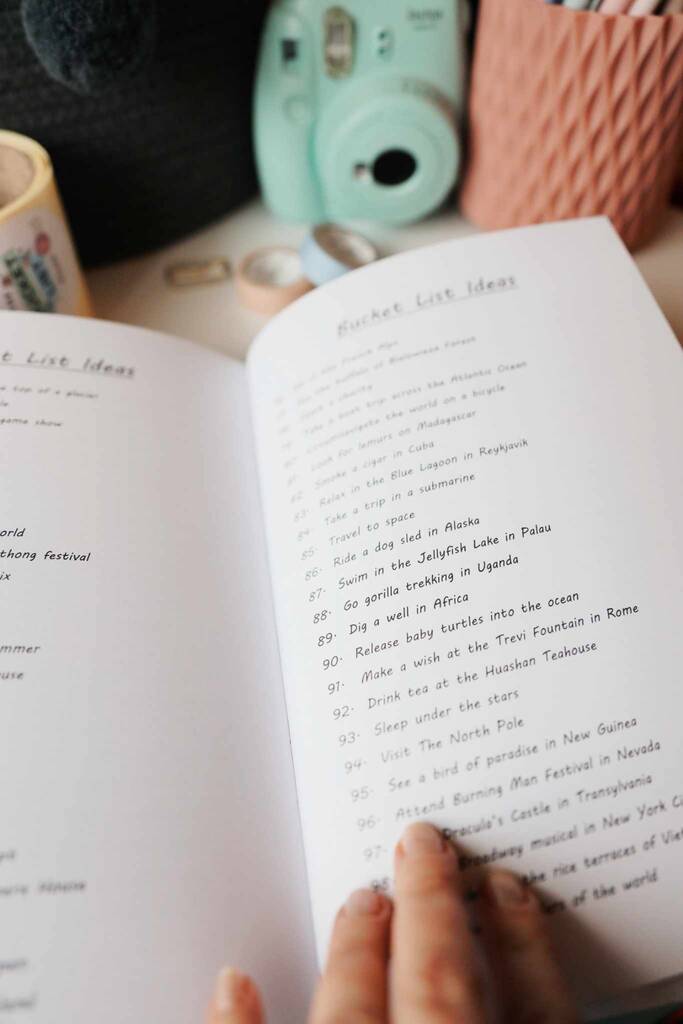 t List Ideas
top of a glacier
game show
orld
thong festival
ix
mmer
use
Bucket List Ideas
Take a boat trip across the Atlantic Ocean
Circumnavigate the world on a bicycle
81. Look for lemurs on Madagascar
82. Smoke a cigar in Cuba
83. Relax in the Blue Lagoon in Reykjavik
84. Take a trip in a submarine
85. Travel to space
86. Ride a dog sled in Alaska
87. Swim in the Jellyfish Lake in Palau
88. Go gorilla trekking in Uganda
89. Dig a well in Africa
90. Release baby turtles into the ocean
91. Make a wish at the Trevi Fountain in Rome
92. Drink tea at the Huashan Teahouse
93. Sleep under the stars
94. Visit The North Pole
95. See a bird of paradise in New Guinea
96. Attend Burning Man Festival in Nevada
97. Dracula's Castle in Transylvania
98. Broadway musical in New York Ci
the rice terraces of Vie
of the world